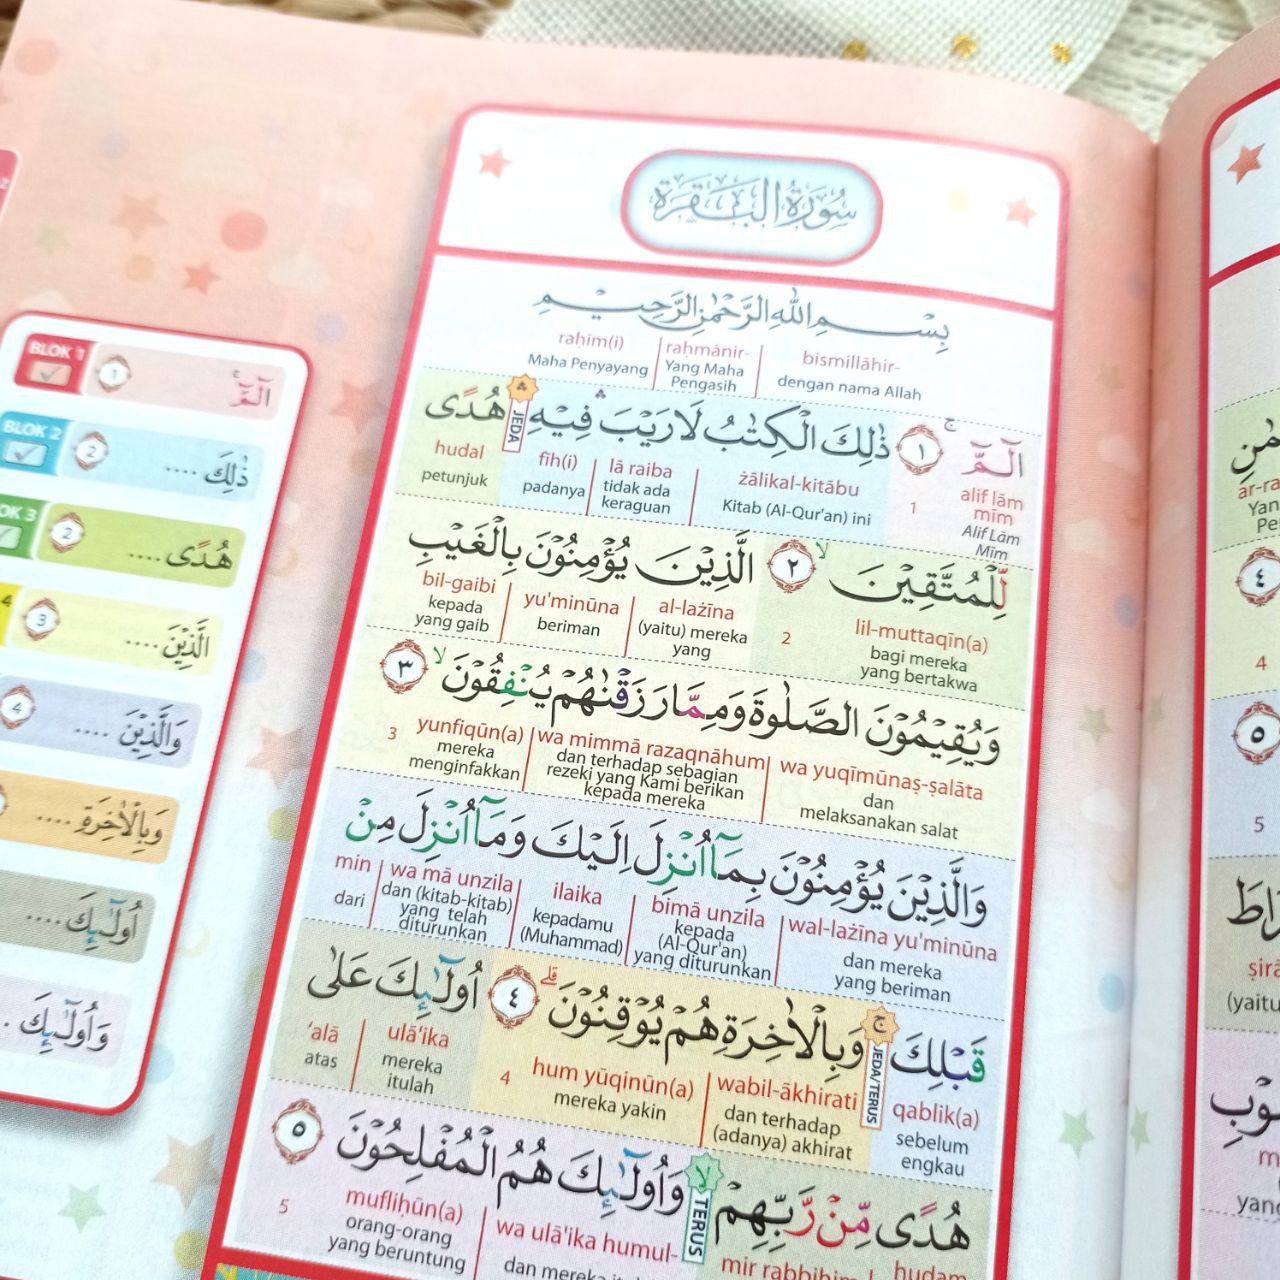 سُورَةُ الْبَقَرَةِ
بِسْمِ اللّٰهِ الرَّحْمٰنِ الرَّحِيْمِ
bismillāhir- raḥmānir- raḥīm(i)
dengan nama Allah Yang Maha Pengasih Maha Penyayang
الۤمّۤ ۚ ١ ذٰلِكَ الْكِتٰبُ لَا رَيْبَ ۛ فِيْهِ ۛ هُدًى
alif lām mīm 1 żālikal-kitābu lā raiba fīh(i) JEDA hudal
Alif Lām Mīm Kitab (Al-Qur'an) ini tidak ada keraguan padanya petunjuk
لِّلْمُتَّقِيْنَ ۙ ٢ الَّذِيْنَ يُؤْمِنُوْنَ بِالْغَيْبِ
lil-muttaqīn(a) 2 al-lażīna yu'minūna bil-gaibi
bagi mereka yang bertakwa (yaitu) mereka yang beriman kepada yang gaib
وَيُقِيْمُوْنَ الصَّلٰوةَ وَمِمَّا رَزَقْنٰهُمْ يُنْفِقُوْنَ ۙ ٣
wa yuqīmūnaṣ-ṣalāta wa mimmā razaqnāhum yunfiqūn(a) 3
dan melaksanakan salat dan terhadap sebagian rezeki yang Kami berikan kepada mereka mereka menginfakkan
وَالَّذِيْنَ يُؤْمِنُوْنَ بِمَآ اُنْزِلَ اِلَيْكَ وَمَآ اُنْزِلَ مِنْ
wal-lażīna yu'minūna bimā unzila ilaika wa mā unzila min
dan mereka yang beriman kepada (Al-Qur'an) yang diturunkan kepadamu (Muhammad) dan (kitab-kitab) yang telah diturunkan dari
قَبْلِكَ ۚ وَبِالْاٰخِرَةِ هُمْ يُوْقِنُوْنَ ۗ ٤ اُولٰۤىِٕكَ عَلٰى
qablik(a) JEDA/TERUS wabil-ākhirati hum yūqinūn(a) 4 ulā'ika 'alā
sebelum engkau dan terhadap (adanya) akhirat mereka yakin mereka itulah atas
هُدًى مِّنْ رَّبِّهِمْ ۙ وَاُولٰۤىِٕكَ هُمُ الْمُفْلِحُوْنَ ٥
hudam mir rabbihim TERUS wa ulā'ika humul- mufliḥūn(a) 5
orang-orang yang beruntung
BLOK 1 ١ الۤمّۤ ۚ
BLOK 2 2 ذٰلِكَ ....
OK 3 2 هُدًى ....
4 3 الَّذِيْنَ ....
4 وَالَّذِيْنَ ....
وَبِالْاٰخِرَةِ ....
اُولٰۤىِٕكَ ....
وَاُولٰۤىِٕكَ .
٤
4
٥
5